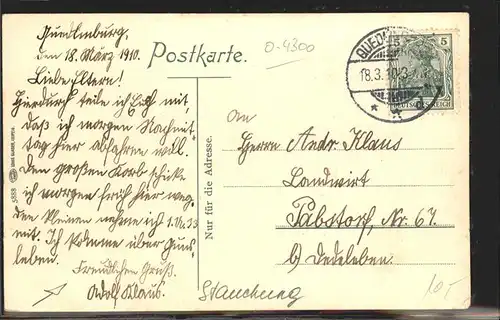 Quedlinburg,
den 18. März 1910.
Liebe Eltern!
Hierdurch teile ich Euch mit,
daß ich morgen Nachmit-
tag hier abfahren will.
Den großen Korb schicke
ich morgen früh hier weg,
den kleinen nehme ich
mit. Ich komme über Guns-
leben.
Freundlichen Gruß.
Adolf Klaus.
Postkarte.
0-4300
18.3.10
5
DEUTSCHES REICH
Nur für die Adresse.
5858
An
Herrn Andr. Klaus
Landwirt
Pabstorf, Nr. 67.
b/ Dedeleben.
Stauchung
10,-